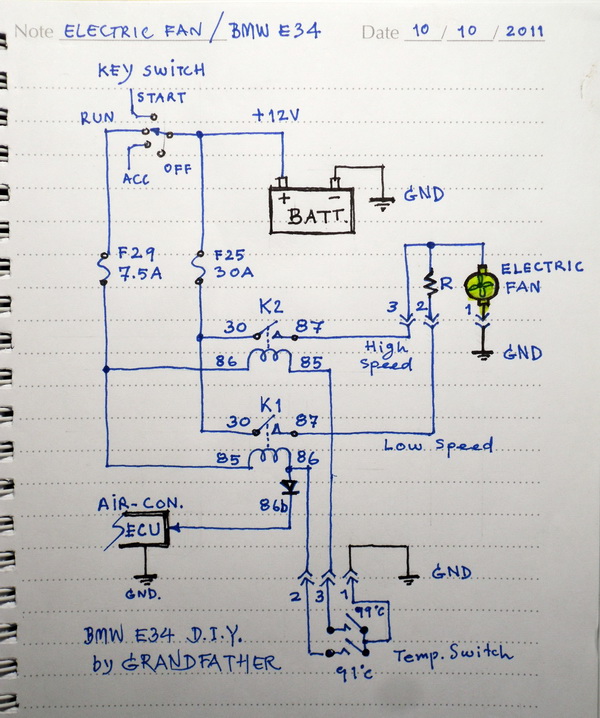 Note ELECTRIC FAN / BMW E34 Date 10 / 10 / 2011
KEY SWITCH
START
RUN
+12V
OFF
ACC
+ -
BATT.
GND
F29
7.5A
F25
30A
ELECTRIC
FAN
R
3 2 1
K2
30 87
High
Speed
GND
86 85
K1
30 87
Low Speed
85 86
86b
AIR-CON.
ECU
GND.
GND
2 3 1
99°C
91°C
Temp. Switch
BMW E34 D.I.Y.
by GRANDFATHER